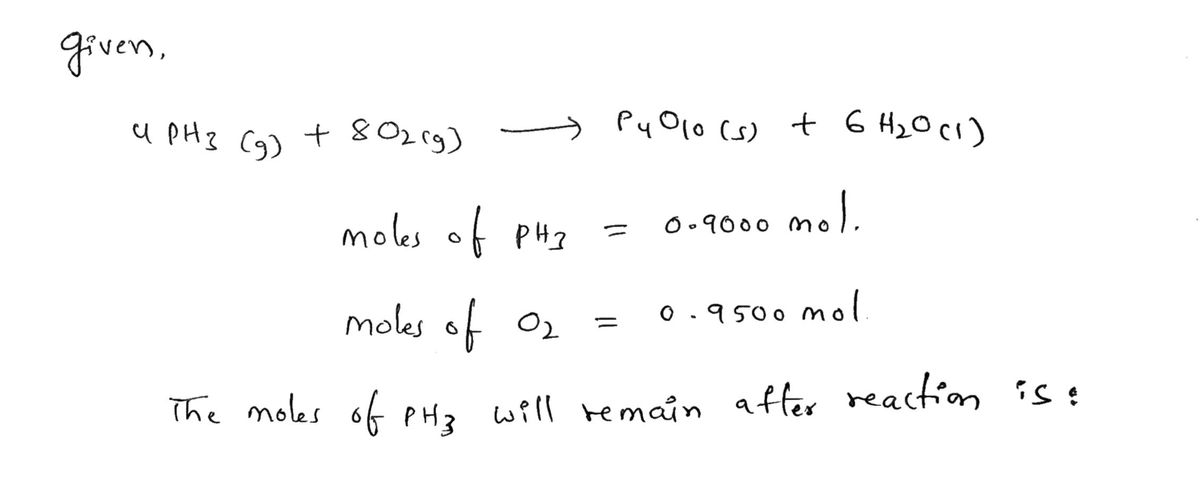 given,
4 PH3 (g) + 8 O2 (g) → P4O10 (s) + 6 H2O (l)
moles of PH3 = 0.9000 mol.
moles of O2 = 0.9500 mol.
The moles of PH3 will remain after reaction is :